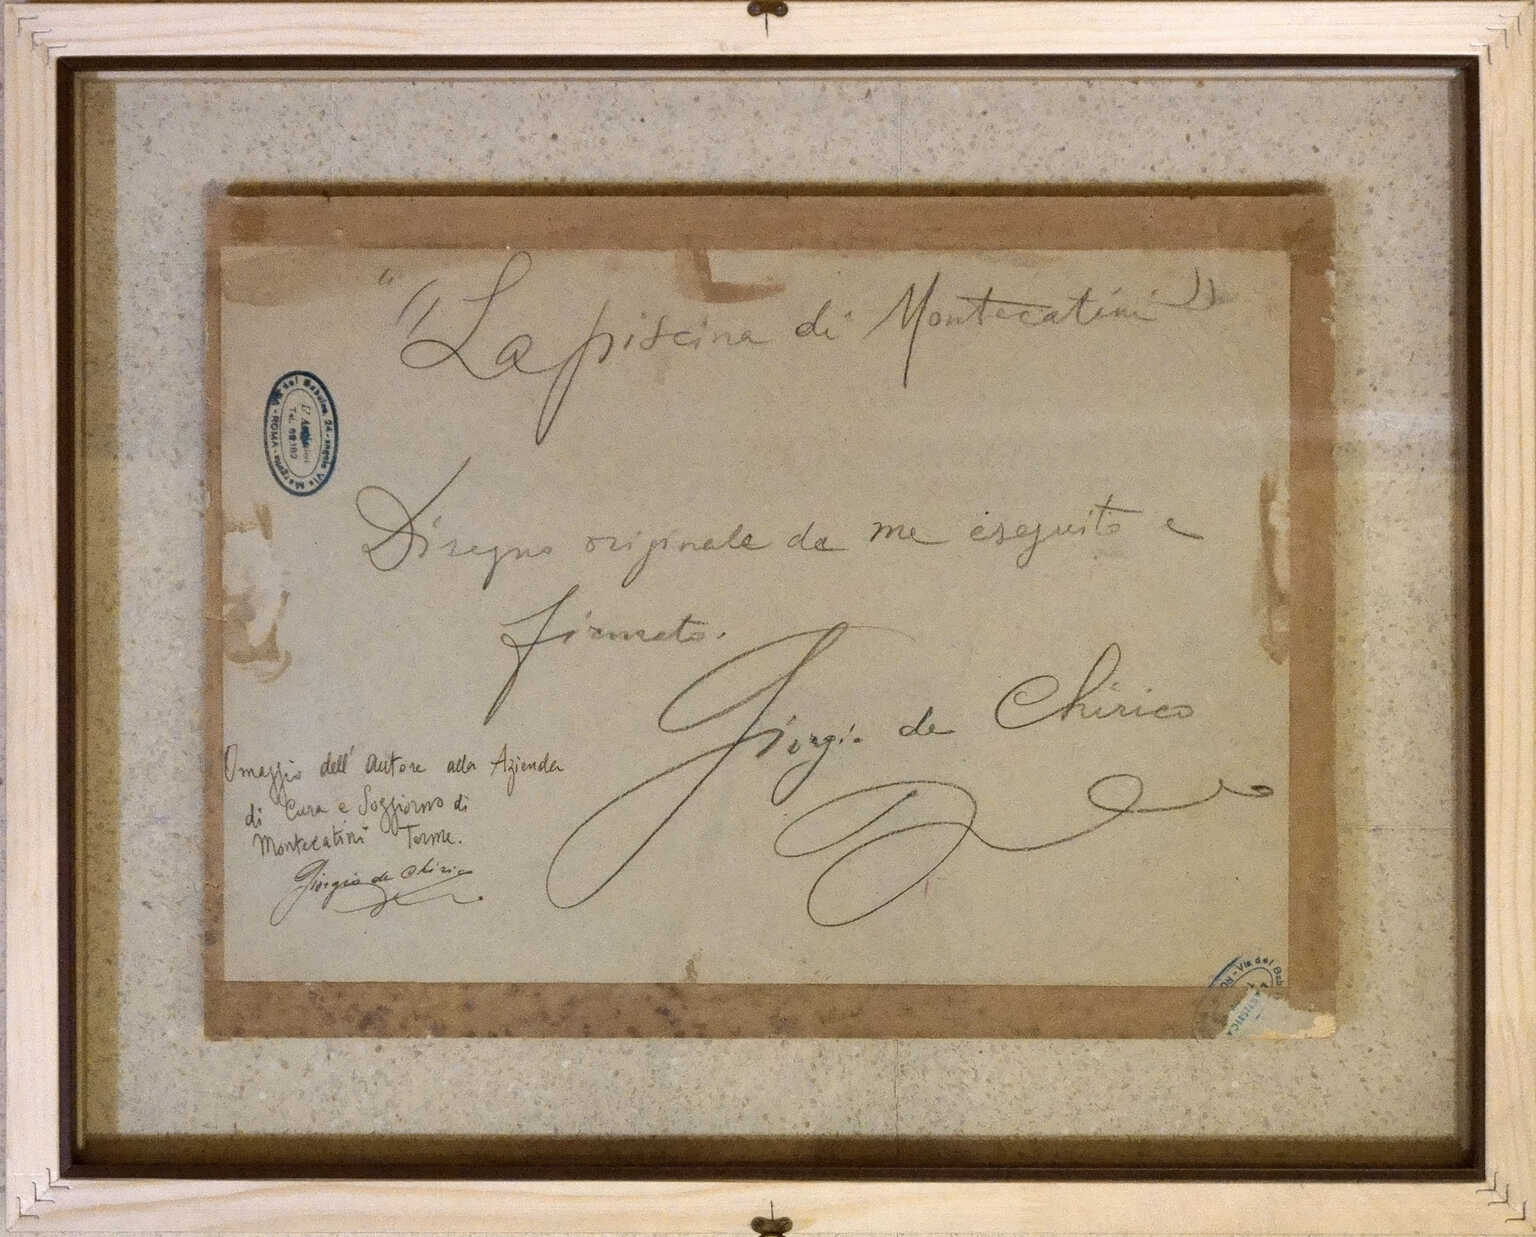 "La piscina di Montecatini"
Disegno originale da me eseguito e
firmato.
Giorgio de Chirico
Omaggio dell'Autore alla Azienda
di Cura e Soggiorno di
Montecatini Terme.
Giorgio de Chirico
Via del Babuino 24 - angolo Via Margutta - ROMA
Tel.
Via del Bab